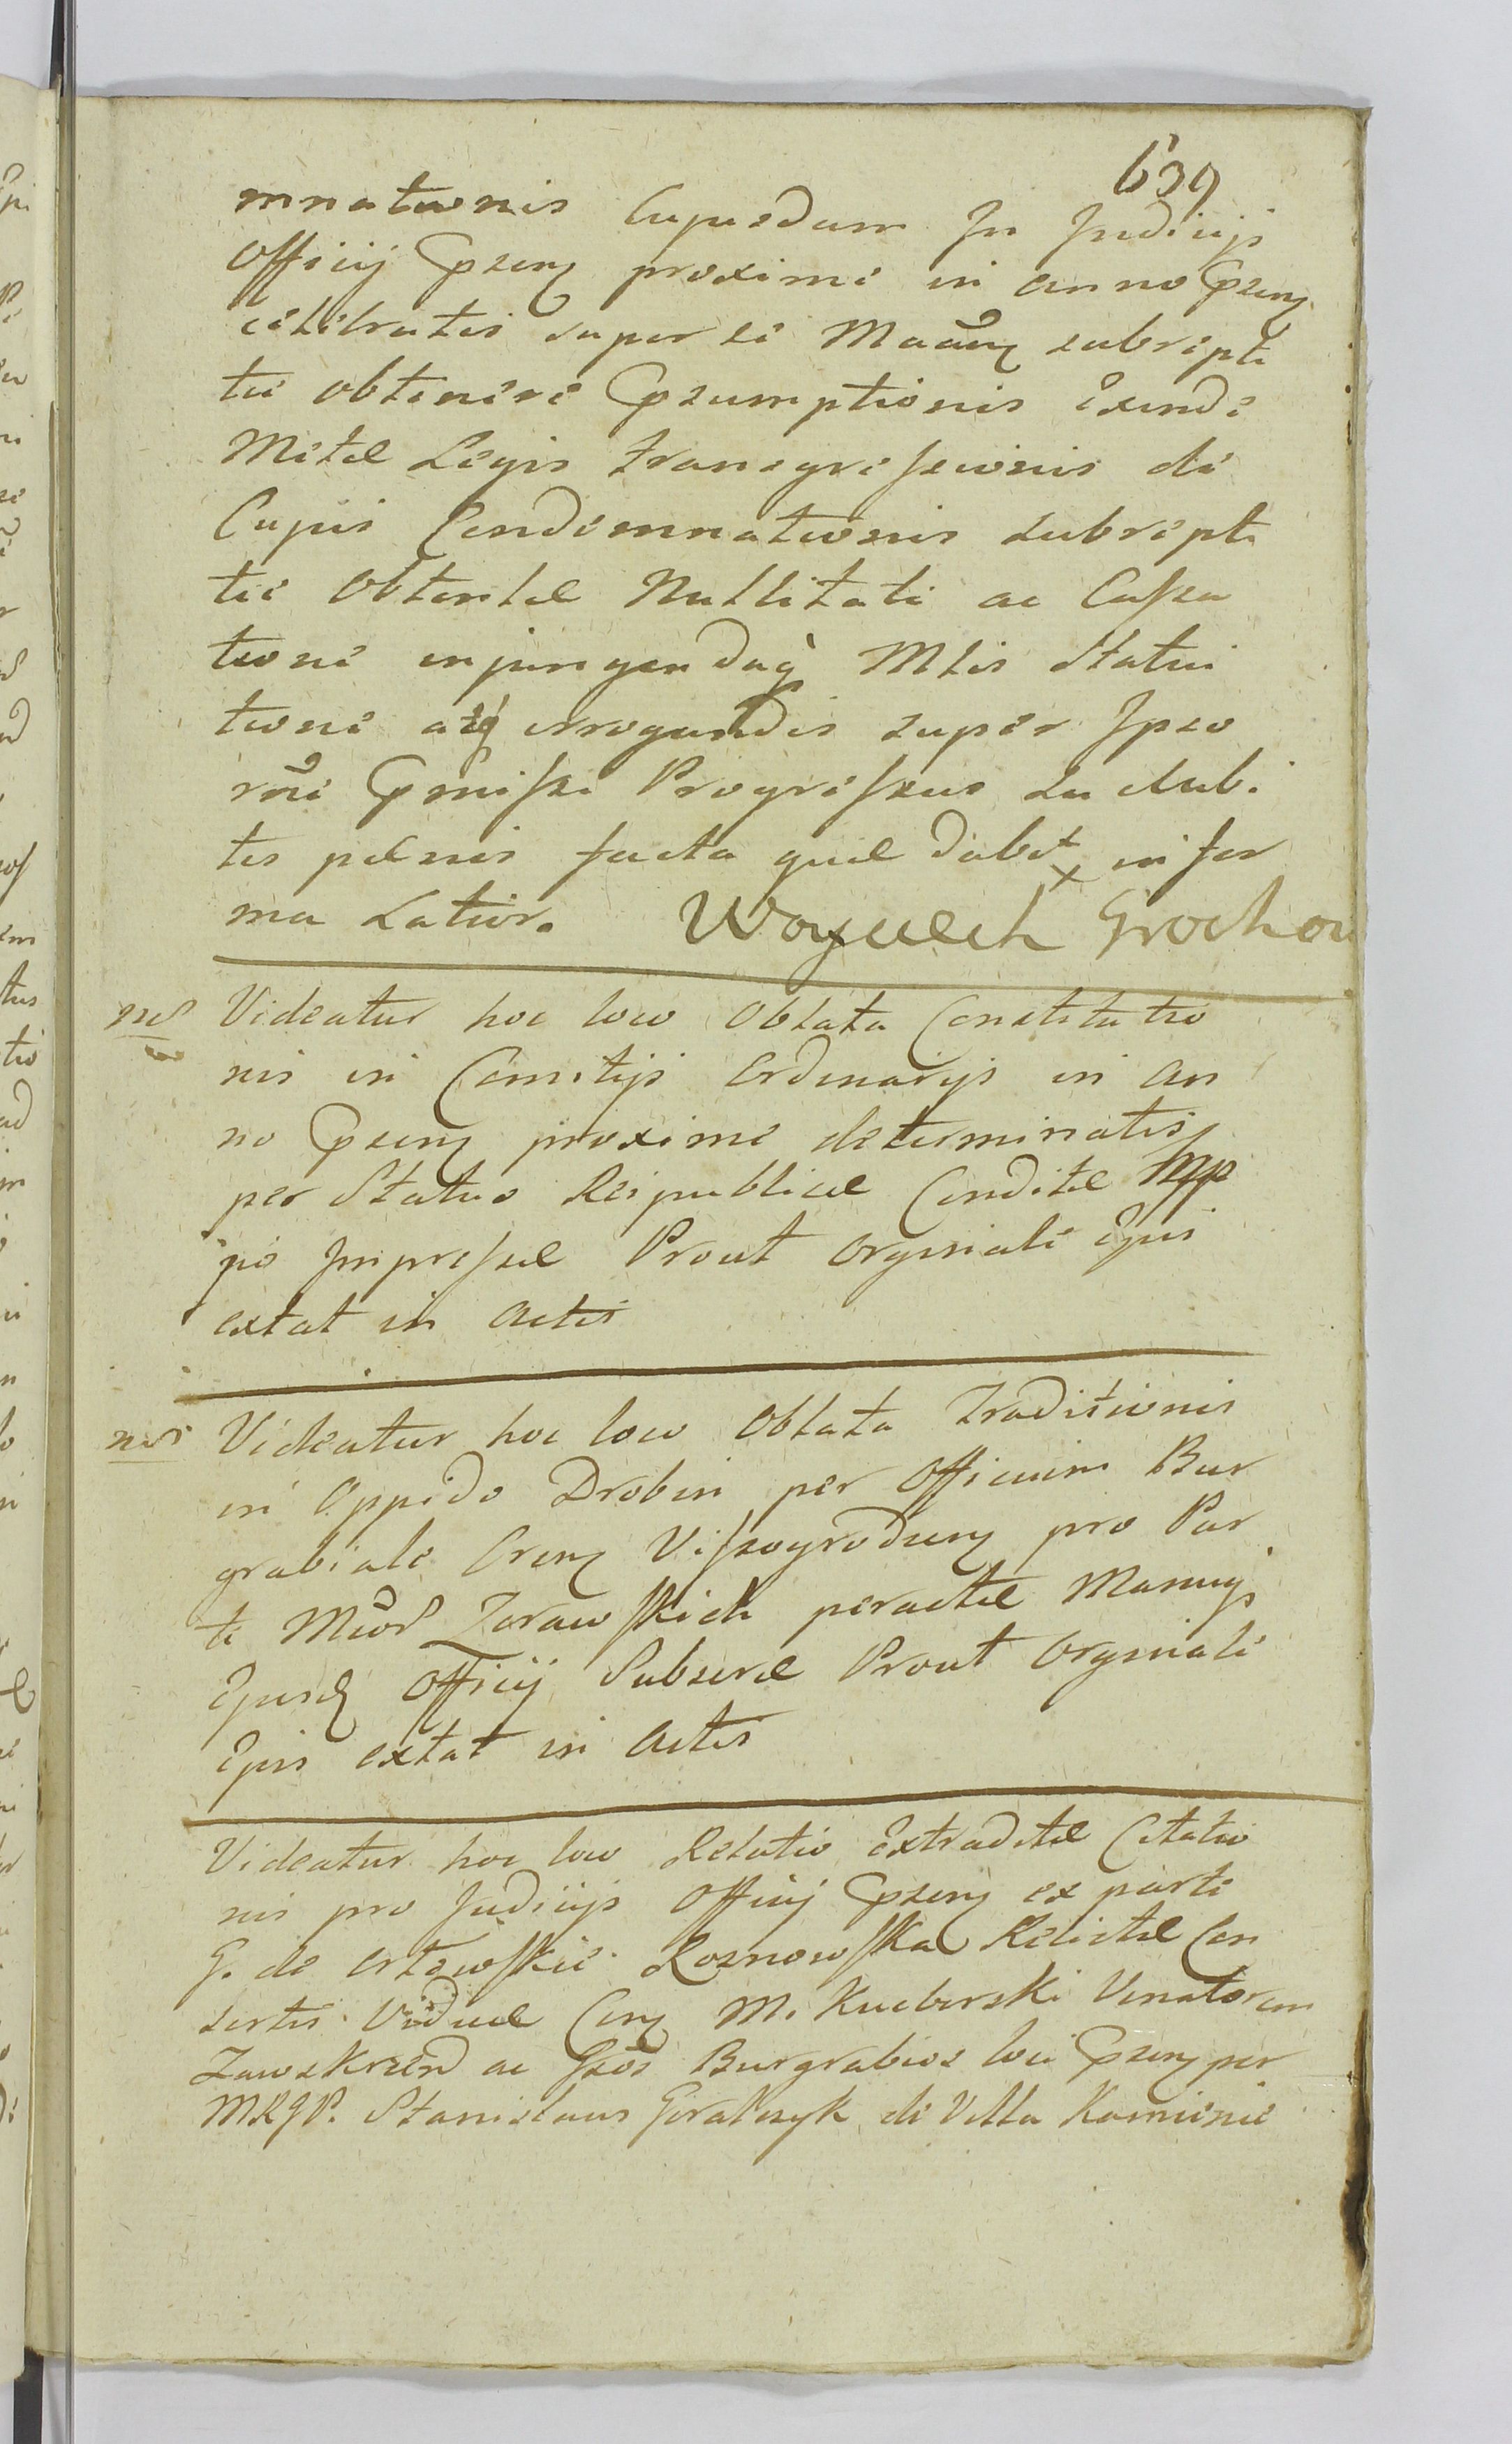 639
mnationis Cujusdam In Judicijs
Officij Psenʒ proxime in anno Psenʒ
celebratis super se subrepti
tie obtenere Psumptionis exinde
Metae Legis transgressionis de
Cujus Condemnationis subrepti
tie Obtentae Nullitate ac Cassa
tione injungendaq Mtis Statui
tione irrogandis super Ipso
Pmissi Progressus
tis paenis facta quae debet in for
ma Latior. Woyciech Grochow
Videatur hoc loco Oblata Constitutio
nis in Comitijs Ordinarijs in an
no Psenʒ proxime determinatis
per Status Reipublicae Conditae
Impressae Prout Orginale Ejus
extat in Actis
Videatur hoc loco Oblata Traditionis
in Oppido Drobin per Officium Bur
grabiale Crenʒ Vissogrodienʒ pro Par
te Zorawskich peractae Manuq
Officij Subscrae Prout Orginale
Ejus extat in Actis
Videatur hoc loco Relatio Extraditae Citatio
nis pro Judicijs Officij Psenʒ ex parte
G. de Roznowska Relictae Con
sortis Viduae Conʒ M. Kucborski Venatorem
Zawskrzen ac Burgrabios loci Psenʒ per
MRGP. Stanislaus Goralczyk de Villa Kamienie